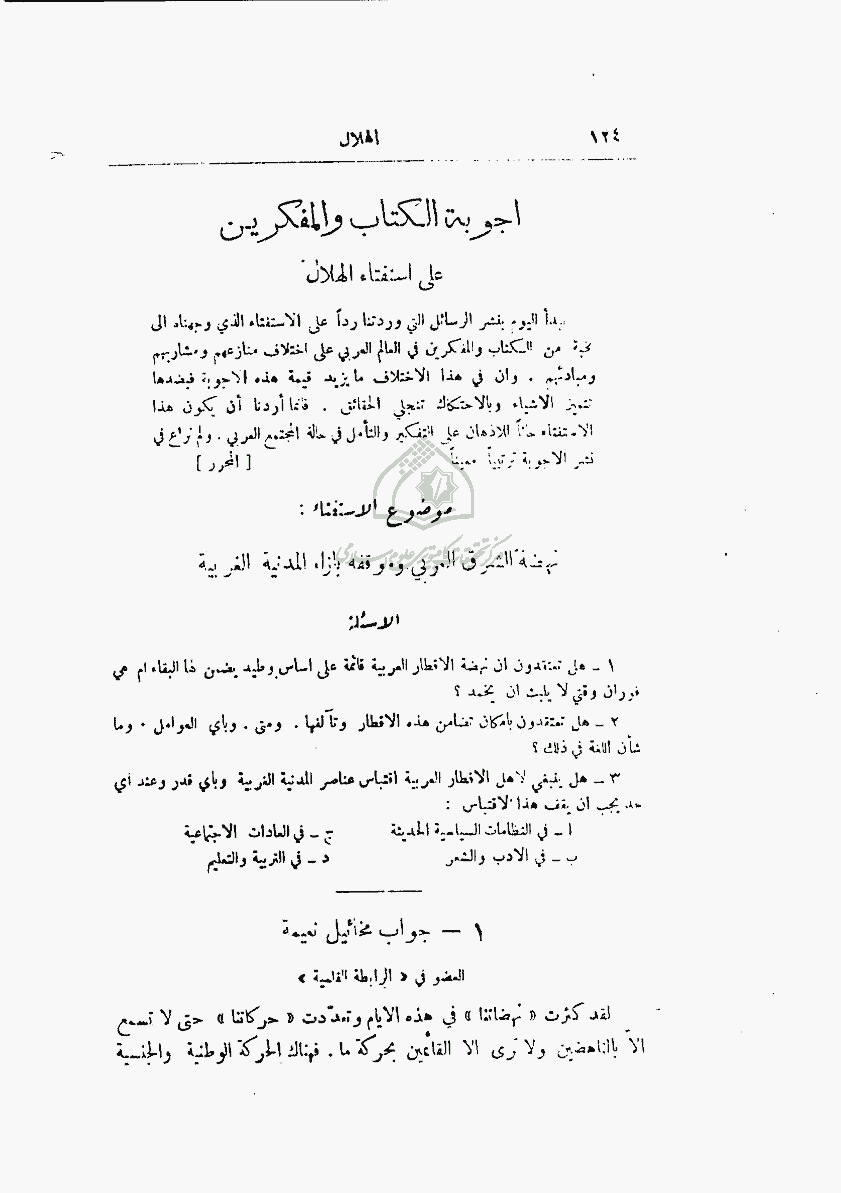 ١٢٤ الهلال
اجوبة الكتاب والمفكرين
على استفتاء الهلال
نبدأ اليوم بنشر الرسائل التي وردتنا رداً على الاستفتاء الذي وجهناه الى
نخبة من الكتاب والمفكرين في العالم العربي على اختلاف منازعهم ومشاربهم
ومبادئهم . وان في هذا الاختلاف ما يزيد قيمة هذه الاجوبة فبضدها
تتميز الاشياء وبالاحتكاك تنجلي الحقائق . فانما أردنا أن يكون هذا
الاستفتاء حثاً للاذهان على التفكير والتأمل في حالة المجتمع العربي . ولم نراع في
نشر الاجوبة ترتيباً معيناً [ المحرر ]
موضوع الاستفتاء :
نهضة الشرق العربي وموقفه بازاء المدنية الغربية
الاسئلة
١ ــ هل تعتقدون ان نهضة الاقطار العربية قائمة على اساس وطيد يضمن لها البقاء ام هي
فوران وقتي لا يلبث ان يخمد ؟
٢ ــ هل تعتقدون بامكان تضامن هذه الاقطار وتآلفها . ومتى . وباي العوامل . وما
شأن اللغة في ذلك ؟
٣ ــ هل ينبغي لاهل الاقطار العربية اقتباس عناصر المدنية الغربية وباي قدر وعند أي
حد يجب ان يقف هذا الاقتباس :
ا ــ في النظامات السياسية الحديثة ج ــ في العادات الاجتماعية
ب ــ في الادب والشعر د ــ في التربية والتعليم
١ — جواب مخائيل نعيمة
العضو في « الرابطة القلمية »
لقد كثرت « نهضاتنا » في هذه الايام وتعدّدت « حركاتنا » حتى لا تسمع
الاّ بالناهضين ولا ترى الا القائمين بحركة ما . فهناك الحركة الوطنية والجنسية